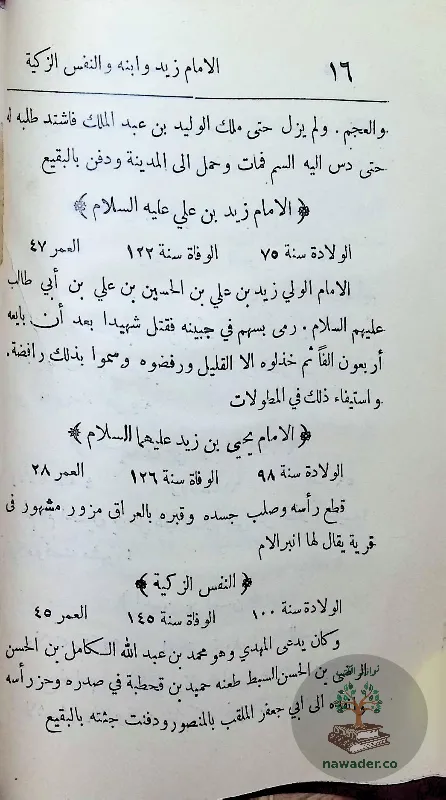 ١٦ الامام زيد وابنه والنفس الزكية
والعجم . ولم يزل حتى ملك الوليد بن عبد الملك فاشتد طلبه له
حتى دس اليه السم فمات وحمل الى المدينة ودفن بالبقيع
﴿ الامام زيد بن علي عليه السلام ﴾
الولادة سنة ٧٥ الوفاة سنة ١٢٢ العمر ٤٧
الامام الولي زيد بن علي بن الحسين بن علي بن أبي طالب
عليهم السلام . رمى بسهم في جبينه فقتل شهيدا بعد أن بايعه
أربعون الفاً ثم خذلوه الا القليل ورفضوه وسموا بذلك رافضة.
واستيفاء ذلك في المطولات
﴿ الامام يحيى بن زيد عليهما السلام ﴾
الولادة سنة ٩٨ الوفاة سنة ١٢٦ العمر ٢٨
قطع رأسه وصلب جسده وقبره بالعراق مزور مشهور فى
قرية يقال لها انبرالام
﴿ النفس الزكية ﴾
الولادة سنة ١٠٠ الوفاة سنة ١٤٥ العمر ٤٥
وكان يدعى المهدي وهو محمد بن عبد الله الكامل بن الحسن
بن الحسن السبط طعنه حميد بن قحطبة في صدره وحز رأسه
الى أبي جعفر الملقب بالمنصور ودفنت جثته بالبقيع
nawader.co